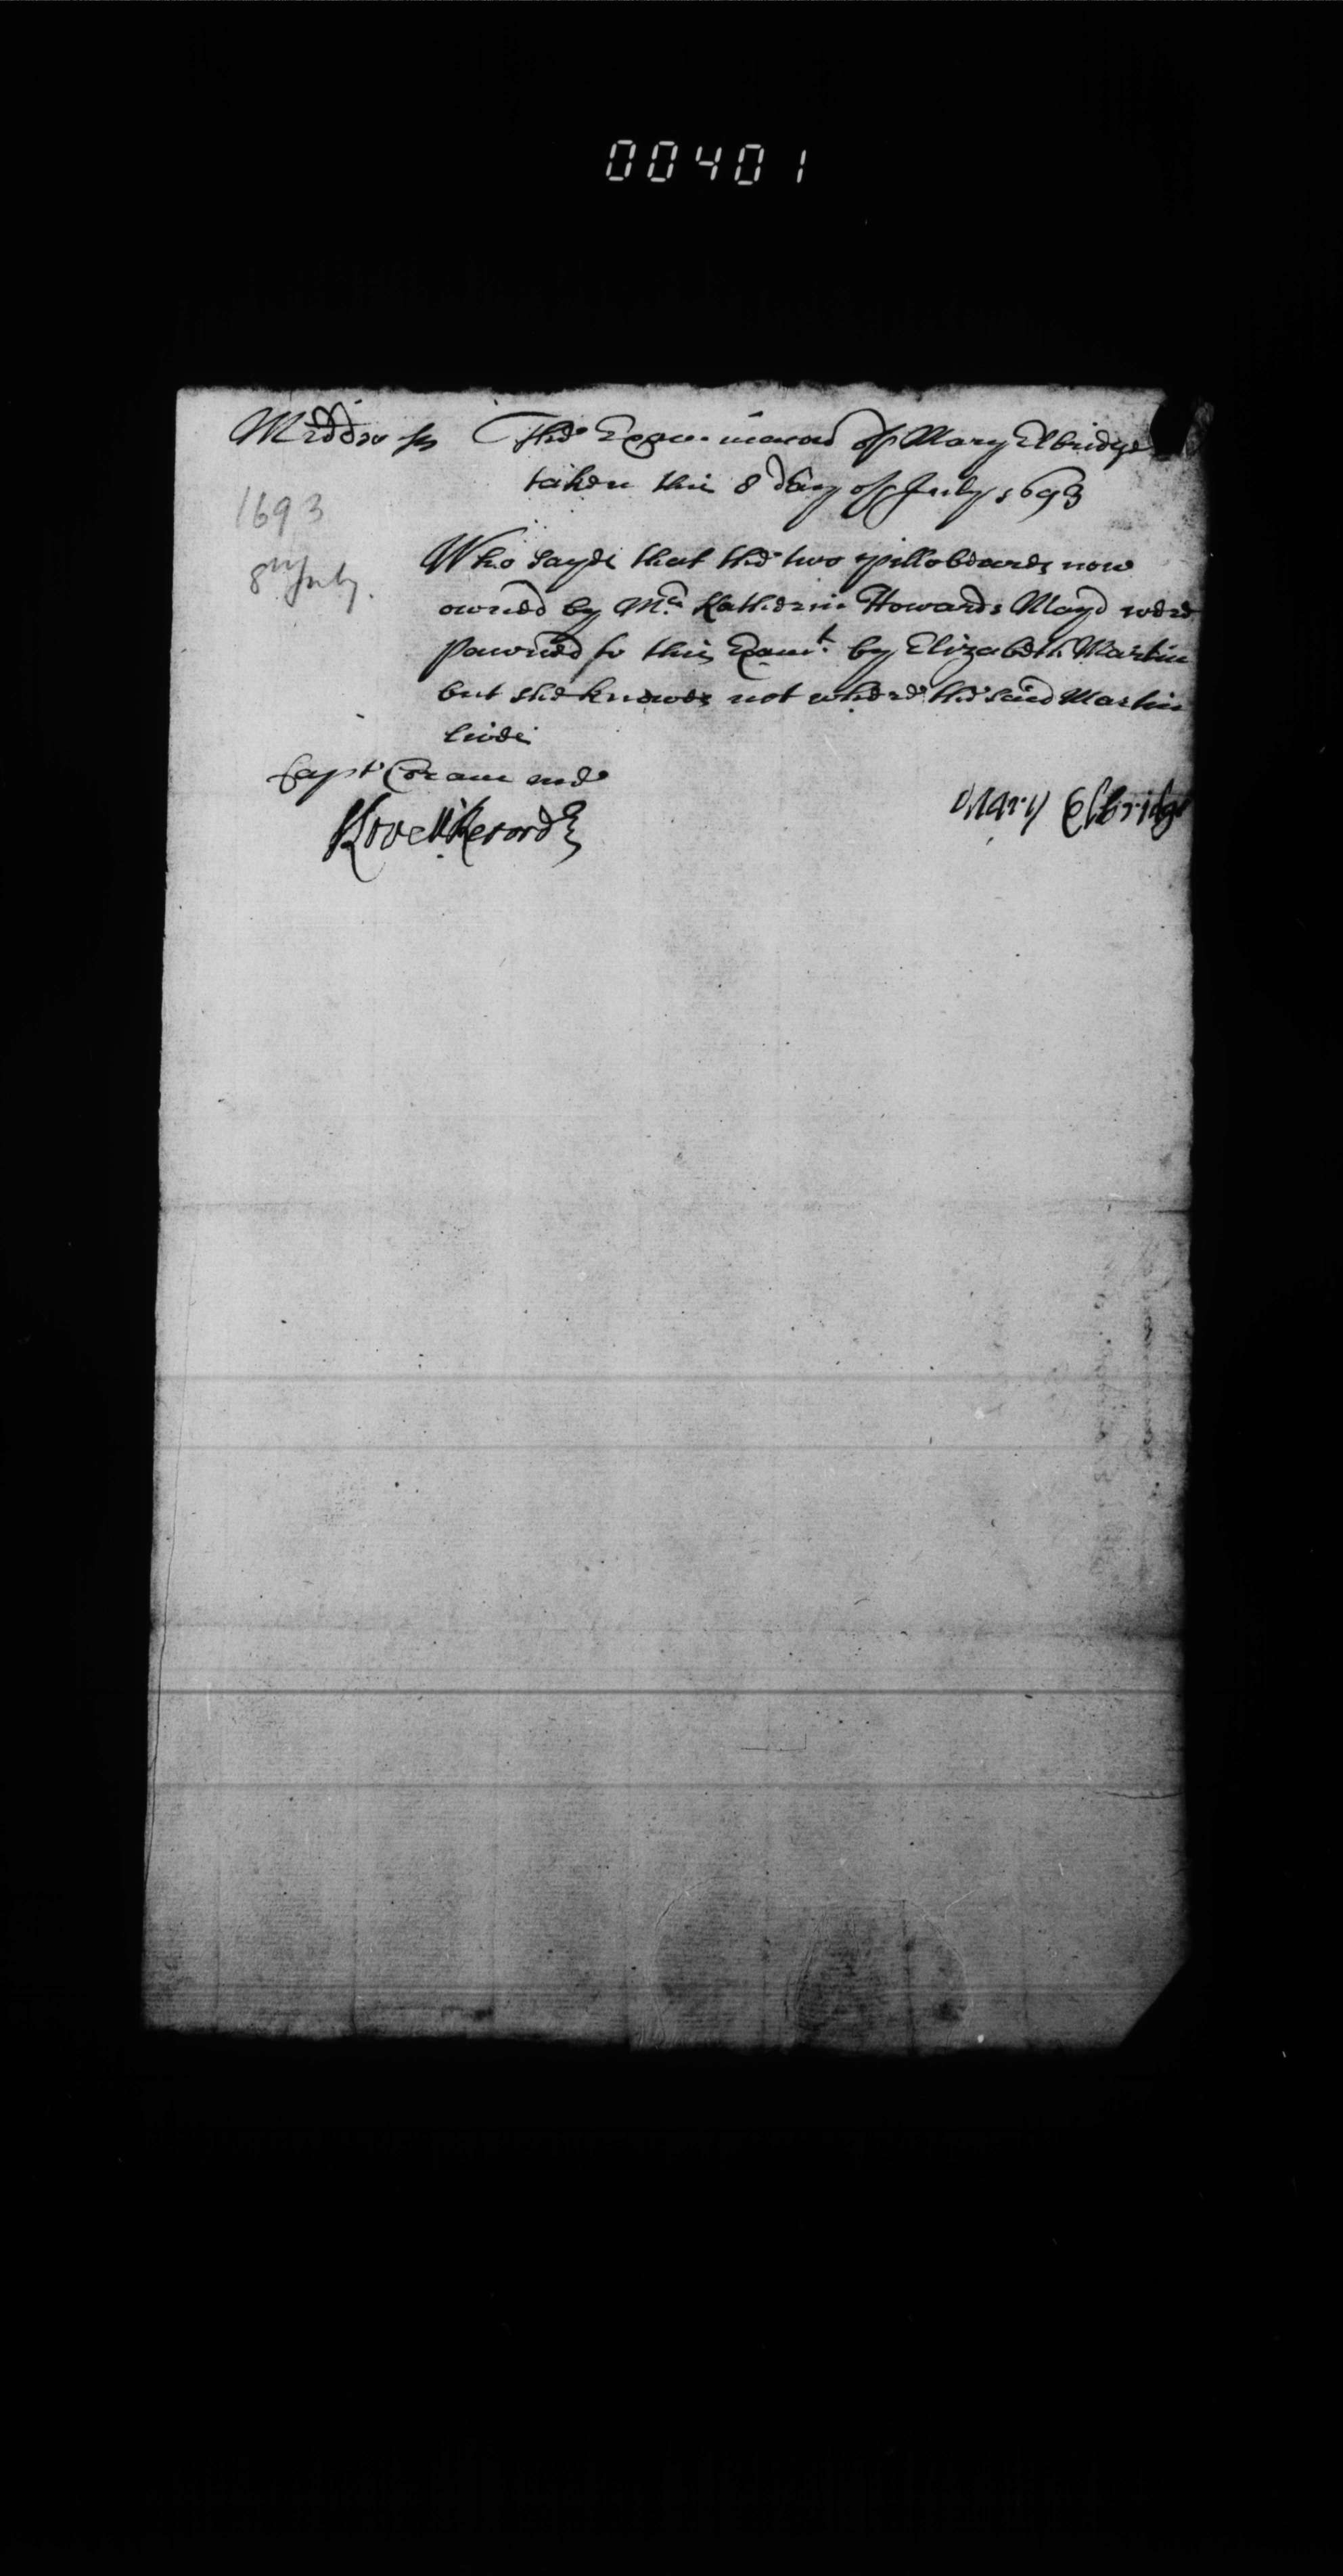 00401
Middx ss The Examinacon of Mary Elbridge
taken this 8 day of July 1693
1693
8th July.
Who Sayes that the two pillobeares now
owned by Mrs Katherin Howards Mayd were
Pawned to this Examt by Elizabeth Martin
but she knowes not where the said Martin
lives
Capt Coram me
Mary Elbridge
Lovell Record